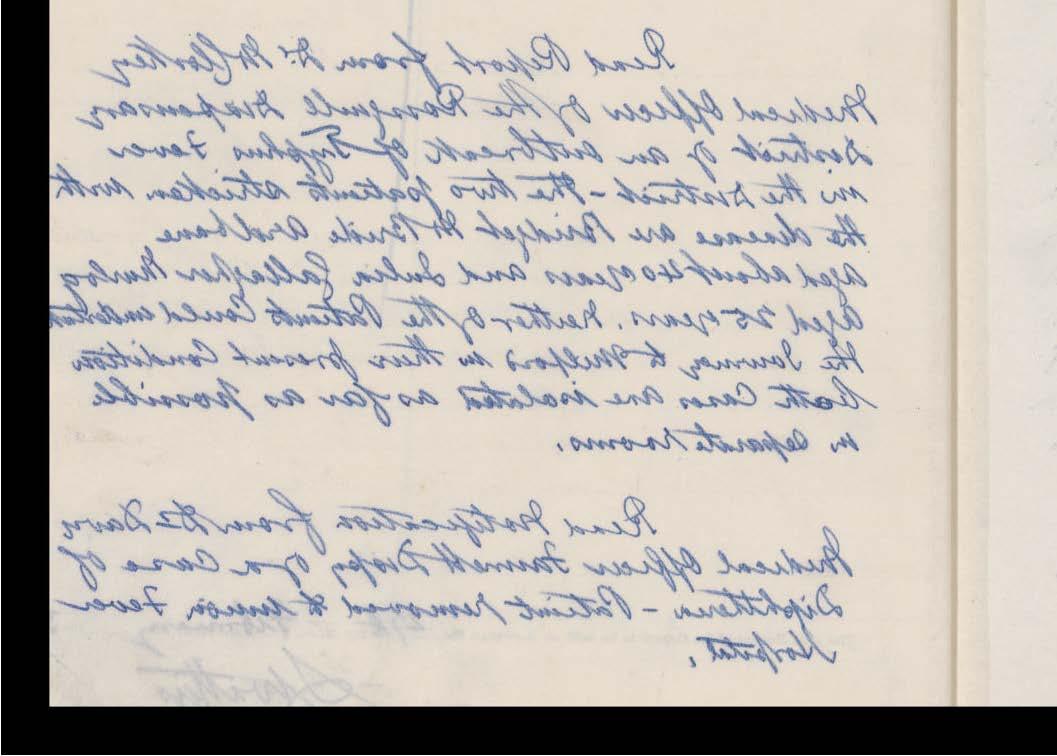 Read Report from Dr. McCloskey
Medical Officer of the Rosguile Dispensary
District of an outbreak of Typhus Fever
in the District - The two patients stricken with
the disease are Bridget McBride Ardbane
aged about 40 years and Julia Gallagher
aged 25 years. Neither of the Patients could undertake
the Journey to Milford in their present Condition
Both Cases are isolated as far as possible
in separate rooms.
Read Notification from Dr
Medical Officer Fannett Dispy of a Case of
Diphtheria - Patient removed to Union Fever
Hospital.